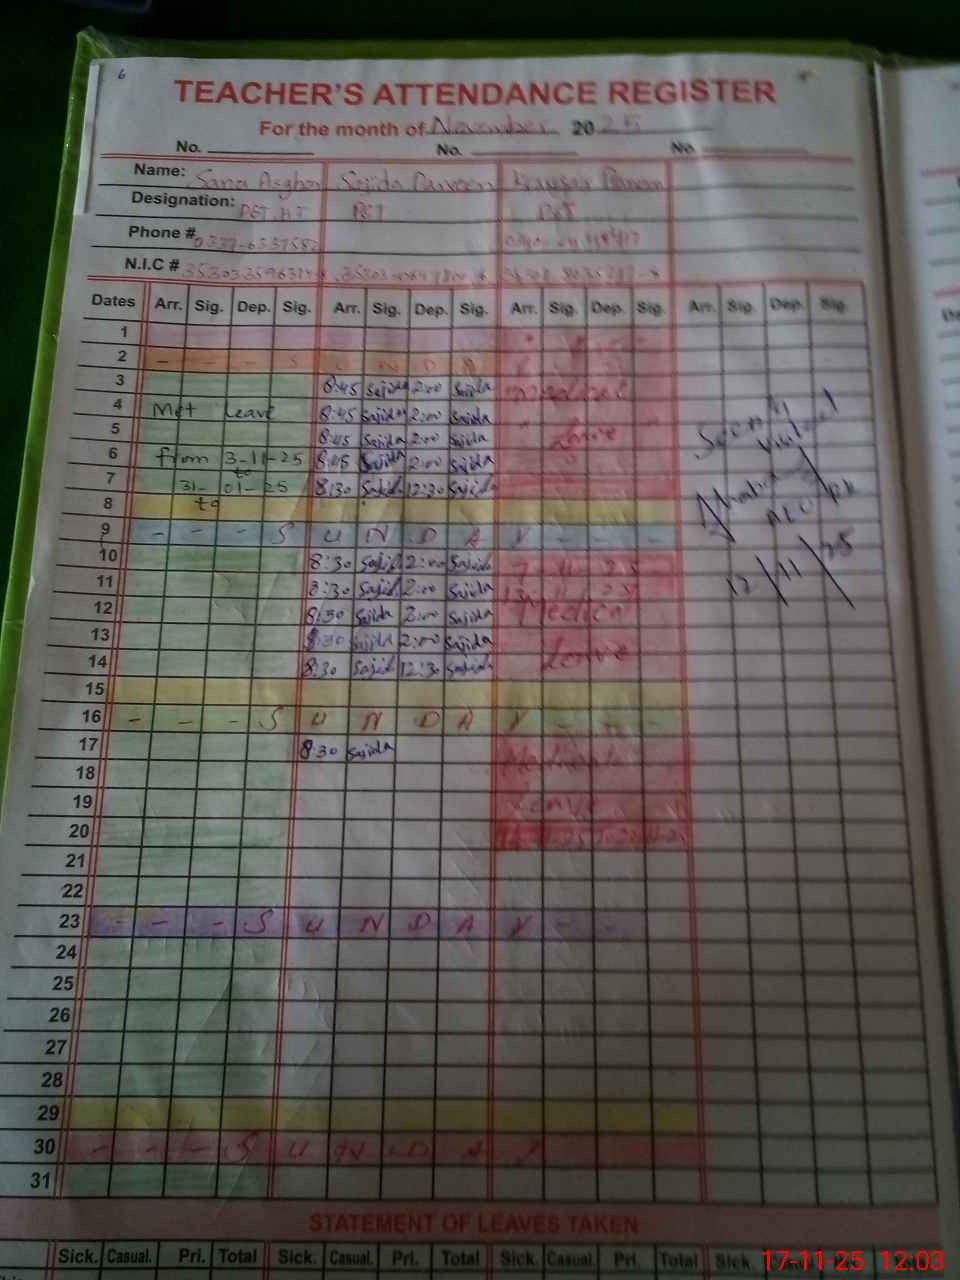 6
TEACHER'S ATTENDANCE REGISTER
For the month of November 2025
No. No. No.
Name: Sana Asghar Sajida Parveen Kausar Parveen
Designation: PST.HT PST PST
Phone #
N.I.C #
Dates Arr. Sig. Dep. Sig. Arr. Sig. Dep. Sig. Arr. Sig. Dep. Sig. Arr. Sig. Dep. Sig.
1
2 - - - S U N D A
3 8:45 Sajida 2:00 Sajida Medical
4 Met Leave 8:45 Sajida 2:00 Sajida
5 8:45 Sajida 2:00 Sajida Leave
6 from 3-11-25 8:45 Sajida 2:00 Sajida
to
7 31-01-25 8:30 Sajida 12:30 Sajida
8 to
9 - - - S U N D A Y - - -
10 8:30 Sajida 2:00 Sajida
11 8:30 Sajida 2:00 Sajida
12 8:30 Sajida 2:00 Sajida Medical
13 8:30 Sajida 2:00 Sajida
14 8:30 Sajida 12:30 Sajida Leave
15
16 - - - S U N D A Y - - -
17 8:30 Sajida Medical
18
19 Leave
20
21
22
23 - - - S U N D A Y - -
24
25
26
27
28
29
30 - - - S U N D A Y
31
Seen
Visited
12/11/25
STATEMENT OF LEAVES TAKEN
Sick. Casual. Pri. Total Sick. Casual. Pri. Total Sick. Casual. Pri. Total Sick.
17-11-25 12:03